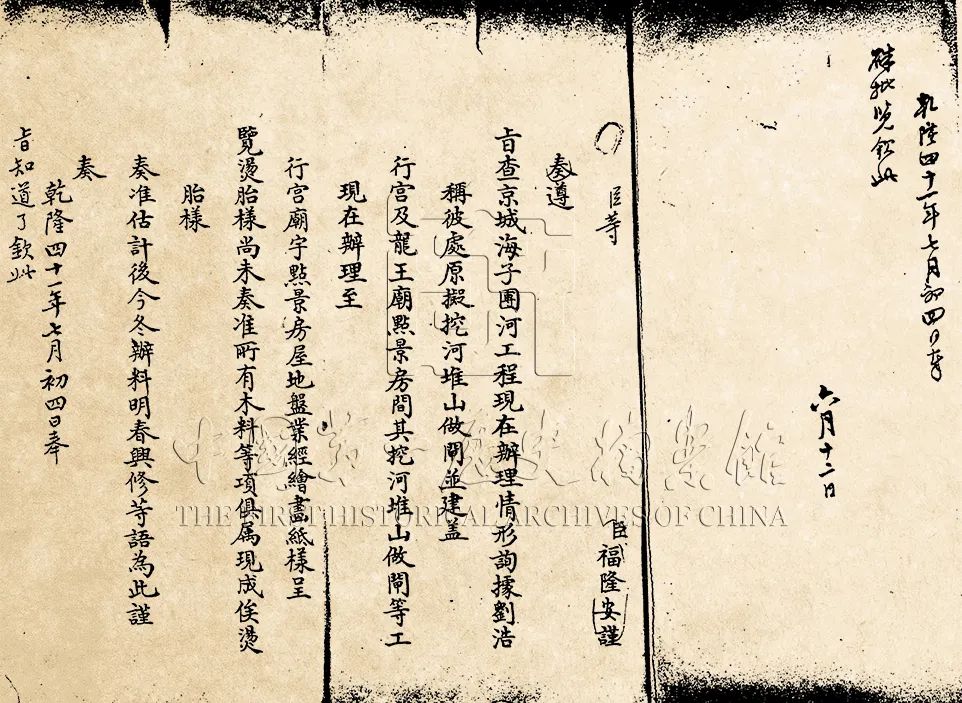 乾隆四十一年七月初四日奉
硃批覽欽此
六月十二日
臣等
臣福隆安謹
奏遵
旨查京城海子團河工程現在辦理情形詢據劉浩
稱彼處原擬挖河堆山做閘並建蓋
行宫及龍王廟㸃景房間其挖河堆山做閘等工
現在辦理至
行宫廟宇㸃景房屋地盤業經繪畫紙樣呈
覽燙胎樣尚未奏准所有木料等項俱属現成俟燙
胎樣
奏准估計後今冬辦料明春興修等語為此謹
奏
乾隆四十一年七月初四日奉
旨知道了欽此
中國第一歷史檔案館
THE FIRST HISTORICAL ARCHIVES OF CHINA